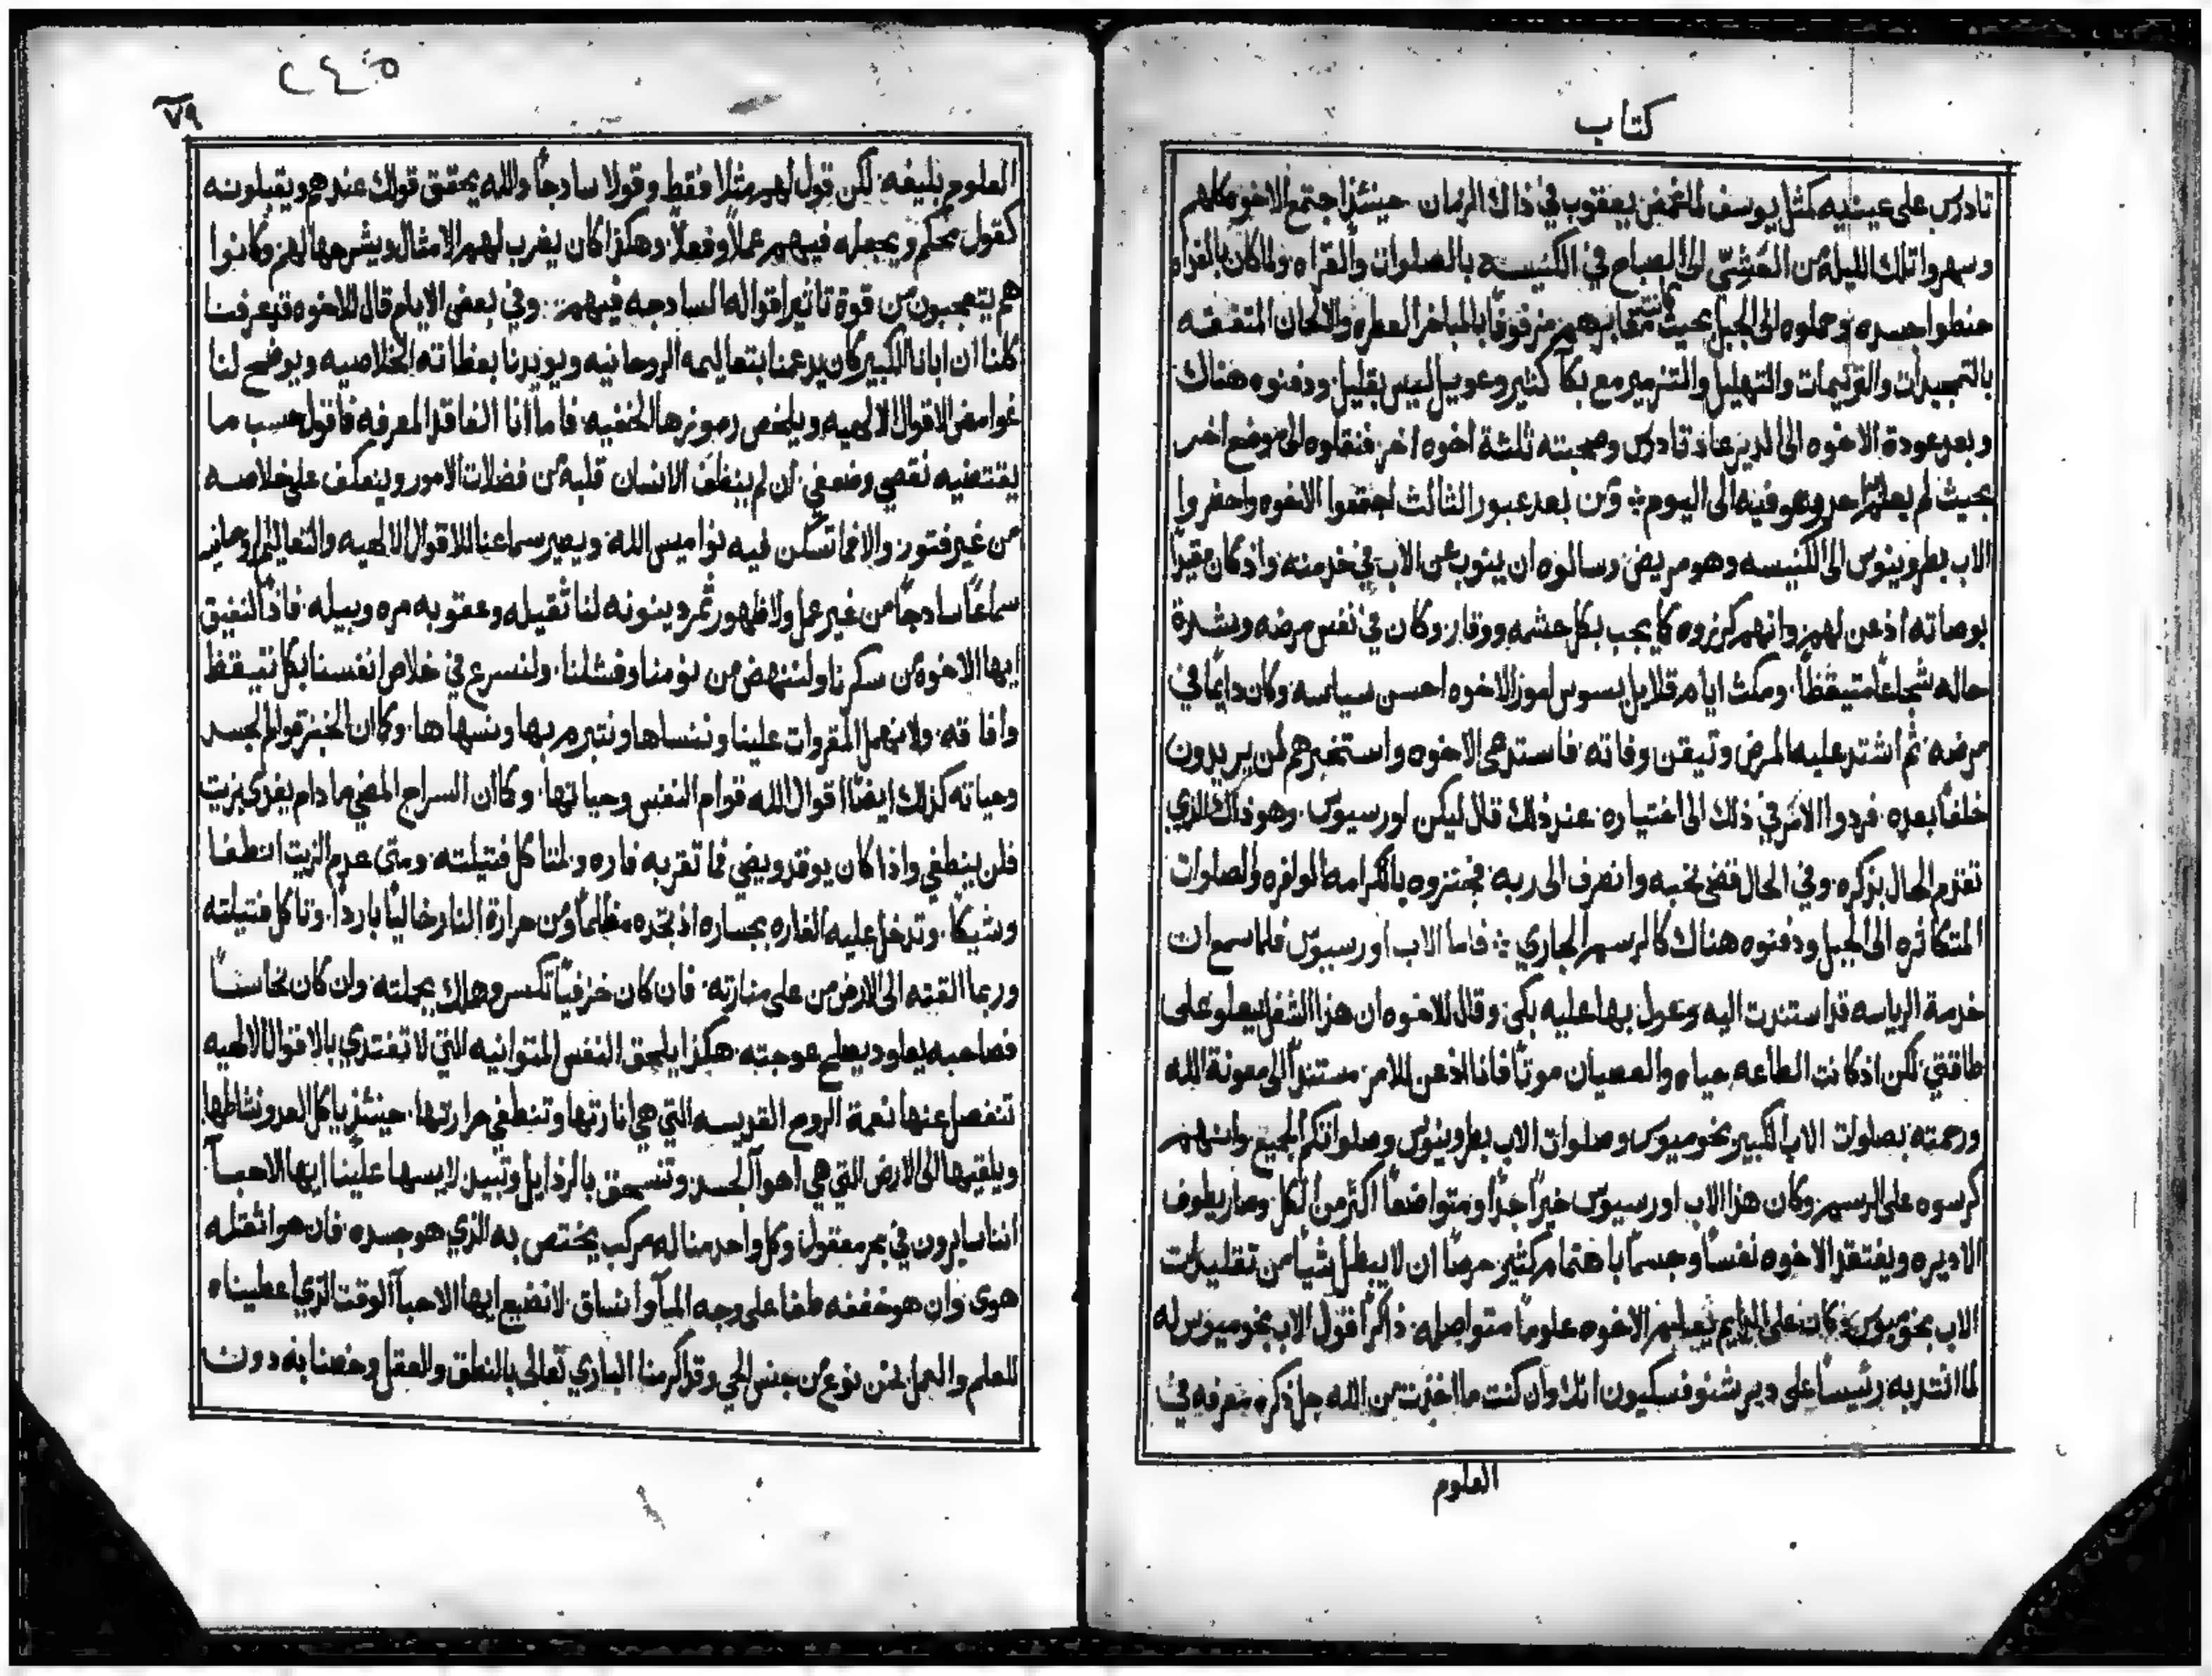 كتاب
تادرس على عينيه كمثل يوسف لما غمض يعقوب في ذاك الزمان حينئذ اجتمع الاخوه كلهم
وسهروا تلك الليله من العشي الى الصباح في الكنيسه بالصلوات والقراه ولما كان بالغداه
حنطوا جسده وحملوه الى الجبل بحيث مقابرهم مزفوفا بالمباخر العطره والالحان المتفقه
بالتمجيدات والترتيمات والتهليل والتزمير مع بكآ كثير وعويل ليس بقليل ودفنوه هناك
وبعد عودة الاخوه الى الدير عاد تادرس وصحبته ثلثة اخوه اخر فنقلوه الى موضع اخر
بحيث لم يعلم احد وهو فيه الى اليوم ومن بعد عبور الثالث اجتمعوا الاخوه واحضروا
الاب بطرونيوس الى الكنيسه وهو مريض وسالوه ان ينوب عن الاب في خدمته واذ كان مقيدا
بوصاته اذعن لهم وانهم كرزوه كما يجب بكل حشمه ووقار وكان في نفس مرضه وبشدة
حاله شجاعا متيقظا ومكث ايام قلايل يسوس امور الاخوه احسن سياسه وكان دايما في
مرضه ثم اشتد عليه المرض وتيقن وفاته فاستدعى الاخوه واستخبرهم لمن يريدون
خلفا بعده فردوا الامر في ذلك الى اختياره عند ذلك قال ليكن اورسيوس وهو ذاك الذي
تقدم الحال بذكره وفي الحال قضى نحبه وانصرف الى ربه فجنزوه بالكرامه الوافره والصلوات
المتكاثره الى الجبل ودفنوه هناك كالرسم الجاري فاما الاب اورسيوس فلما سمع ان
خدمة الرياسه قد استندت اليه وعول بها عليه بكى وقال للاخوه ان هذا الشغل يعلو على
طاقتي لكن اذ كانت الطاعه حياه والعصيان موتا فانا اذعن للامر مستندا الى معونة الله
ورحمته بصلوات الاب الكبير بخوميوس وصلوات الاب بطرونيوس وصلواتكم الجميع وانهم
كرسوه على الرسم وكان هذا الاب اورسيوس خيرا جدا ومتواضعا اكثر من الكل وصار يطوف
الاديره ويفتقد الاخوه نفسا وجسما باهتمام كثير حرصا ان لا يبطل شيا من تقليدات
الاب بخوميوس وكان على الدايم يعلم الاخوه علوما متواصله ذاكرا قول الاب بخوميوس له
لما انتدبه رئيسا على دير شنوفسكيون انك وان كنت ما اخذت من الله جل ذكره معرفه في
العلوم
٧٩
العلوم بليغه لكن قول لهم مثلا فقط وقولا سادجا والله يحقق قولك عندهم ويقبلونه
كقول محكم ويجعله فيهم عملا وفعلا وهكذا كان يضرب لهم الامثال ويشرحها لهم وكانوا
هم يتعجبون من قوة تاثير اقواله السادجه فيهم وفي بعض الايام قال للاخوه قد عرفنا
كلنا ان ابانا الكبير كان يدعمنا بتعاليمه الروحانيه ويويدنا بعظاته الخلاصيه ويوضح لنا
غوامض الاقوال الالهيه ويلخص رموزها الخفيه فاما انا الفاقد المعرفه فاقول حسب ما
يقتضيه نقصي وضعفي ان لم ينظف الانسان قلبه من فضلات الامور وينعكف على خلاصه
من غير فتور والا فما تسكن فيه نواميس الله ويصير سماعنا للاقوال الالهيه والتعاليم الروحانيه
سماعا سادجا من غير عمل ولا ظهور ثمر دينونه لنا ثقيله وعقوبه مره وبيله فاذا لنفيق
ايها الاخوه من سكرنا ولننهض من نومنا وفشلنا ولنسرع في خلاص انفسنا بكل تيقظ
وافاقه ولا نهمل المقروات علينا وننساها ونتبرم بها ونسهاها وكما ان الخبز قوام الجسد
وحياته كذلك ايضا اقوال الله قوام النفس وحياتها وكما ان السراج المضي ما دام يغدى بزيت
فلن ينطفي واذا كان يوقد ويضي فما تقربه فاره ولتاكل فتيلته ومتى عدم الزيت انطفا
وشيكا وتدخل عليه الفاره بجساره اذ تجده مظلما ومن حرارة النار خاليا باردا وتاكل فتيلته
وربما القته الى الارض من على منارته فان كان خزفيا تكسر وهلك بجملته وان كان نحاسا
فصاحبه يعاود يصلح عوجته هكذا يلحق النفس المتوانيه التي لا تغتدي بالاقوال الالهيه
تنفصل عنها نعمة الروح القدسه التي هي انارتها وتنطفي حرارتها حينئذ ياكل العدو نشاطها
ويلقيها الى الارض التي هي اهوآ الجسد وتنسحق بالرذايل وتبيد لا يسها علينا ايها الاحبآ
اننا سايرون في بحر معقول وكل واحد منا له مركب يختص به الذي هو جسده فان هو اثقله
هوى وان هو خففه طفا على وجه المآ وانساق لا نضيع ايها الاحبآ الوقت الذي اعطيناه
للعلم والعمل نحن نوع من جنس الحي وقد اكرمنا الباري تعالى بالنطق والعقل وخصنا به دون